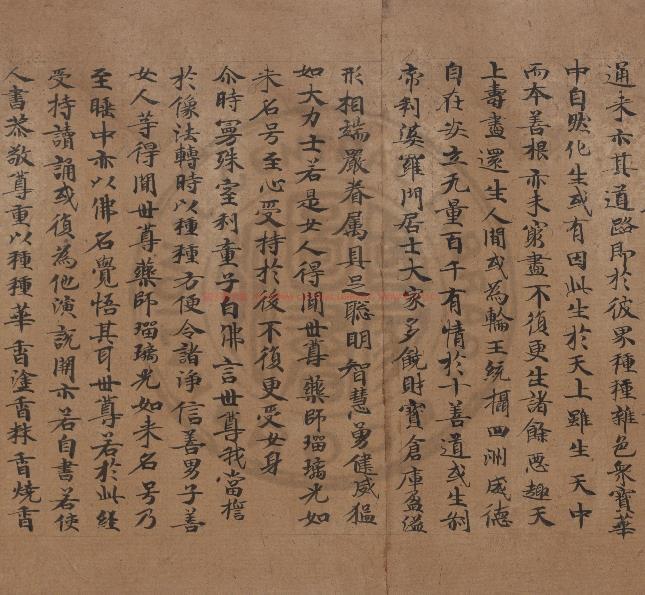 通来亦其道路即於彼界種種雜色衆寶華
中自然化生或有因此生於天上雖生天中
而本善根亦未窮盡不復更生諸餘惡趣天
上壽盡還生人間或為輪王統攝四洲威德
自在安立无量百千有情於十善道或生刹
帝利婆羅門居士大家多饒財寶倉庫盈溢
形相端嚴眷属具足聡明智慧勇健威猛
如大力士若是女人得聞世尊藥師瑠璃光如
来名号至心受持於後不復更受女身
尒時曼殊室利童子白佛言世尊我當擔
於像法轉時以種種方便令諸淨信善男子善
女人等得聞世尊藥師瑠璃光如来名号乃
至睡中亦以佛名覺悟其耳世尊若於此經
受持讀誦或復為他演說開示若自書若使
人書恭敬尊重以種種華香塗香抹香燒香